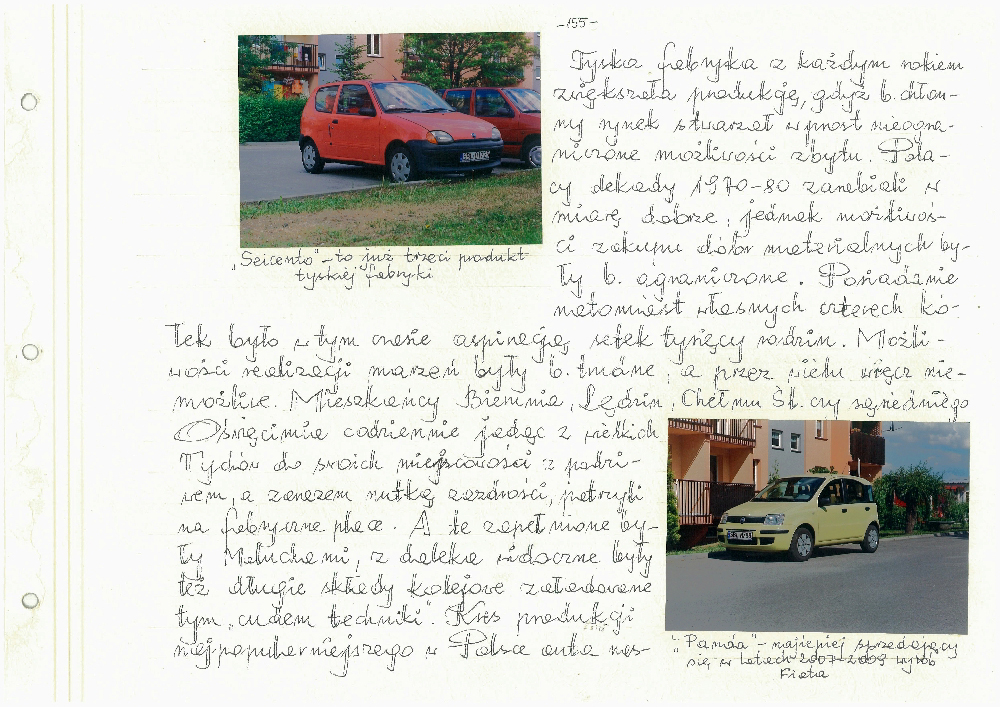 -155-
Tyska fabryka z każdym rokiem
zwiększała produkcję, gdyż b. chłon-
ny rynek stwarzał wprost nieogra-
niczone możliwości zbytu. Pola-
cy dekady 1970-80 zarabiali w
miarę dobrze, jednak możliwoś-
ci zakupu dóbr materialnych by-
ły b. ograniczone. Posiadanie
natomiast własnych czterech kó-
"Seicento" - to już trzeci produkt
tyskiej fabryki
łek było w tym czasie aspiracją setek tysięcy rodzin. Możli-
wości realizacji marzeń były b. trudne, a przez wielu wręcz nie-
możliwe. Mieszkańcy Bierunia, Lędzin, Chełmu Śl. czy sąsiedniego
Oświęcimia codziennie jadąc z wielkich
Tychów do swoich miejscowości z podzi-
wem, a zarazem nutką zazdrości, patrzyli
na fabryczne place. A te zapełnione by-
ły Maluchami, z daleka widoczne były
też długie składy kolejowe załadowane
tym "cudem techniki". Kres produkcji
najpopularniejszego w Polsce auta nas-
"Panda" - najlepiej sprzedający
się w latach 2007-2009 wyrób
Fiata